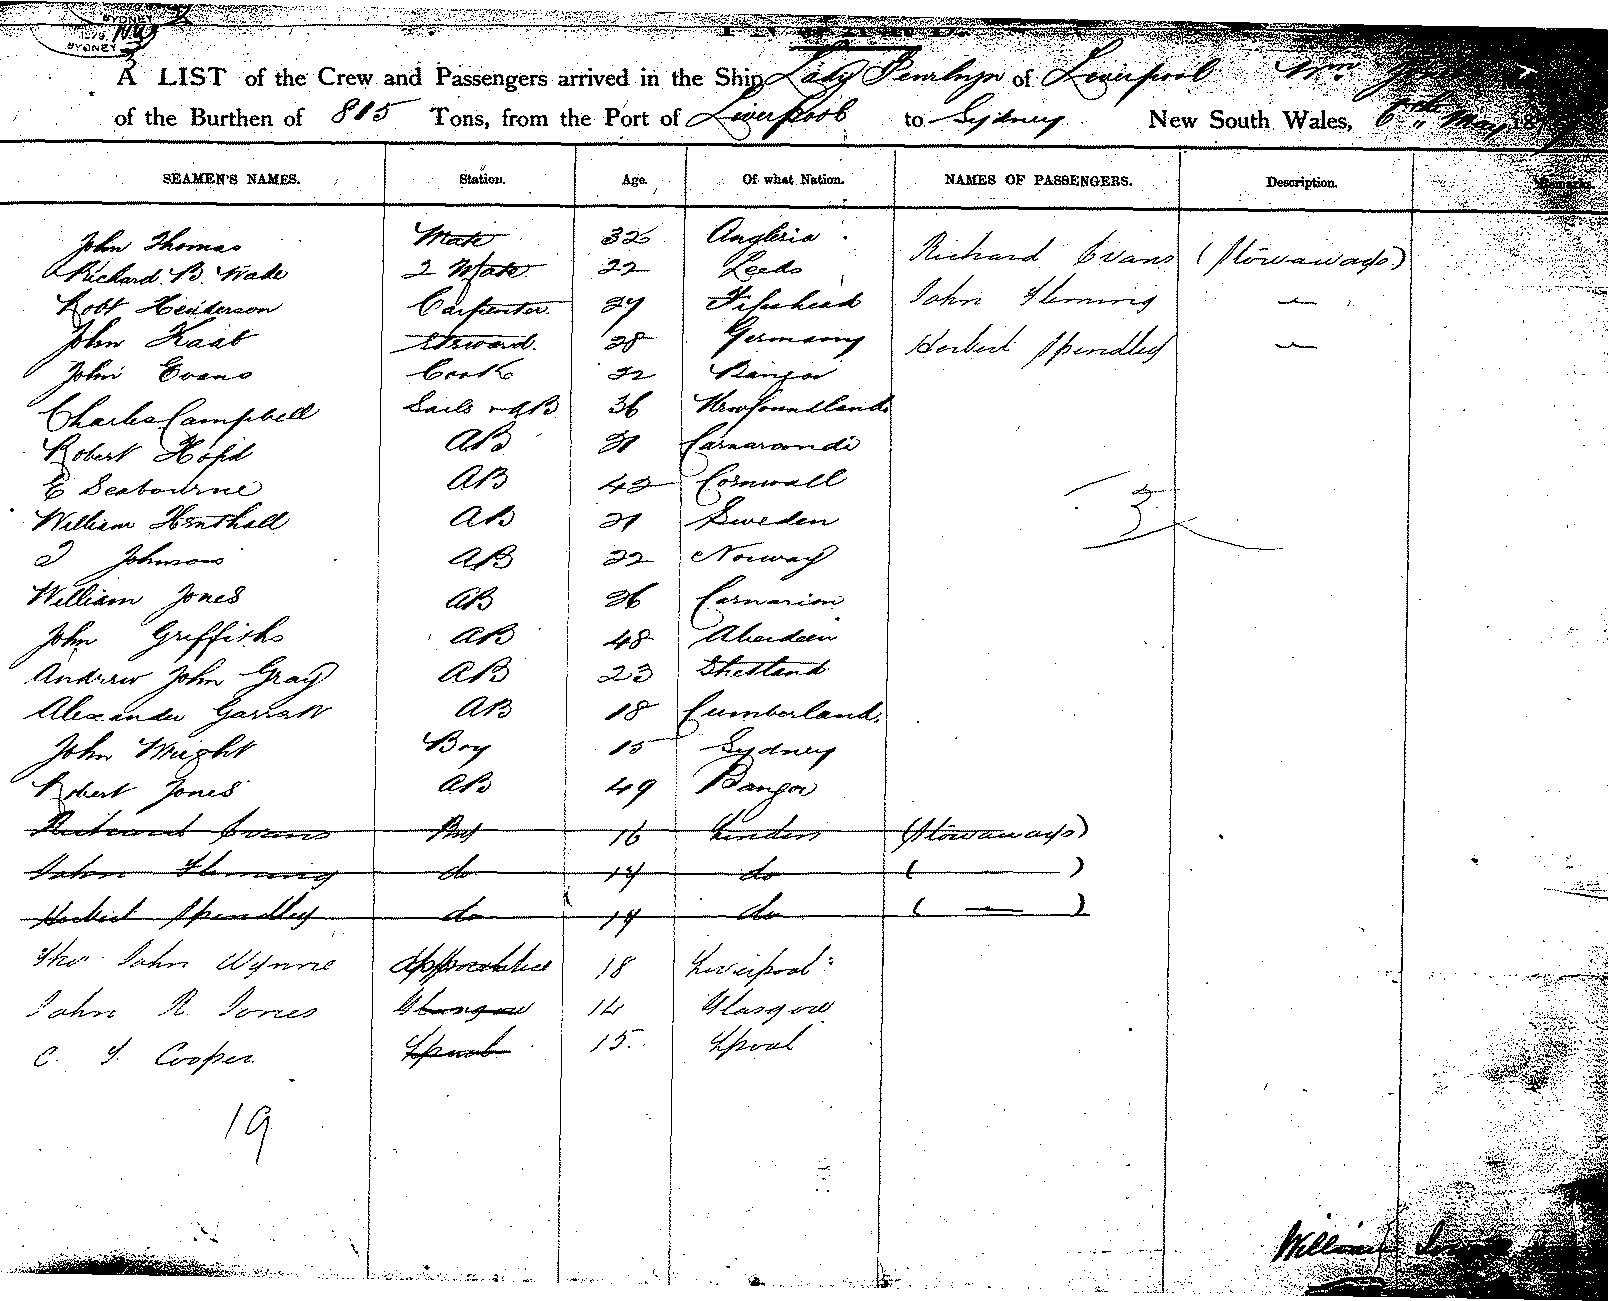 SYDNEY
SYDNEY
A LIST of the Crew and Passengers arrived in the Ship Lady Penrhyn of Liverpool Wm
of the Burthen of 815 Tons, from the Port of Liverpool to Sydney New South Wales, 6th May
SEAMEN'S NAMES. Station. Age. Of what Nation. NAMES OF PASSENGERS. Description. Remarks.
John Thomas Mate 32 Anglesia Richard Evans (Stowaways)
Richard B. Wake 2 Mate 22 Leeds
Robt Henderson Carpenter 29 Fifeshead John Fleming —
John Kaab Steward 28 Germany Herbert Spendley —
John Evans Cook 22 Bangor
Charles Campbell Sails & AB 36 Newfoundland
Robert AB 21
E Seabourne AB 42 Cornwall 3
William Henthall AB 21 Sweden
Johnson AB 22 Norway
William Jones AB 26 Carnarion
John Griffiths AB 48 Aberdeen
Andrew John Gray AB 23 Shetland
Alexander Garratt AB 18 Cumberland
John Wright Boy 15 Sydney
Robert Jones AB 49 Bangor
Richard Evans Boy 16 (Stowaways)
John Fleming do 14 do ( — )
Herbert Spendley do 14 do ( — )
Thos John Wynne Apprentice 18 Liverpool
John R. Jones Glasgow 14 Glasgow
C. T. Cooper Lpool 15 Lpool
19
William Jones